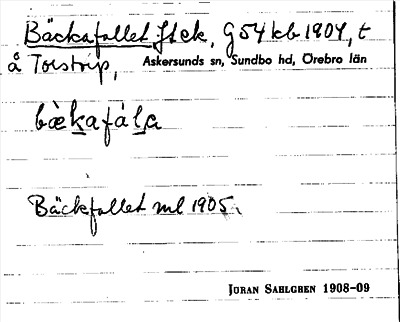 Bäckafallet Jlek, G54 kb 1904, t
å Torstorp, Askersunds sn, Sundbo hd, Örebro län
bækafála
Bäckfallet ml 1905.
JORAN SAHLGREN 1908-09